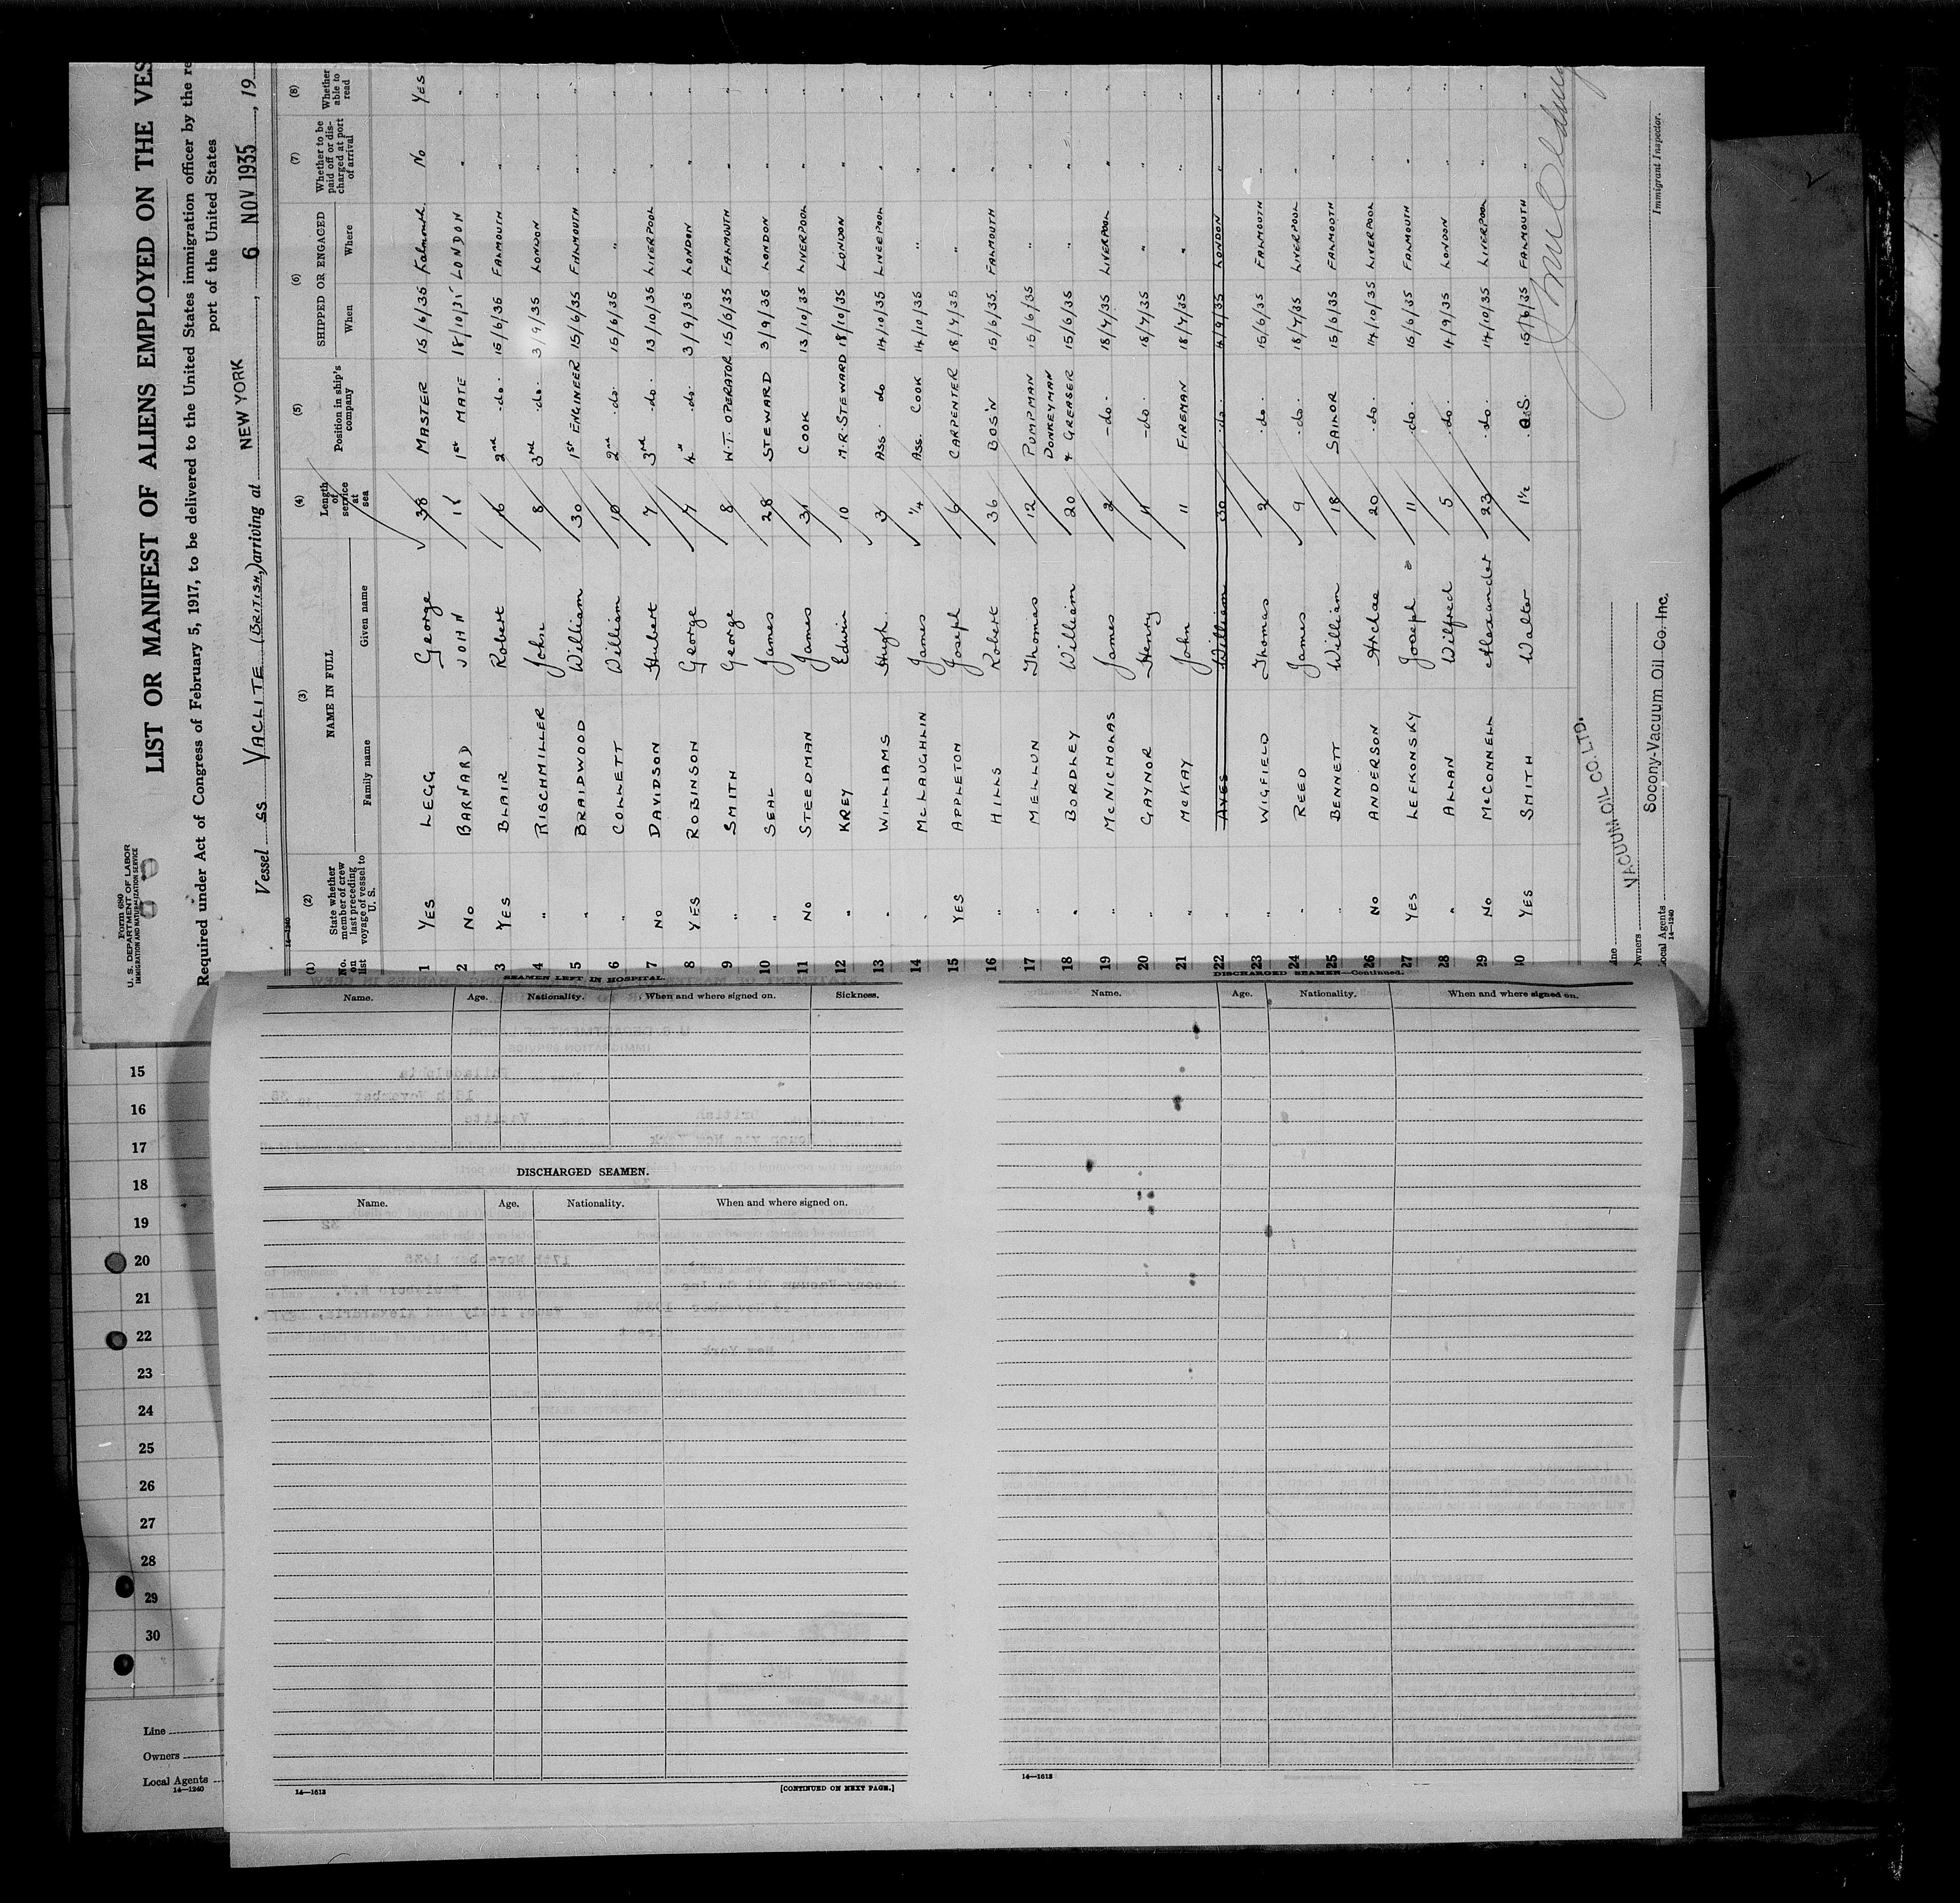 Form 680
U. S. DEPARTMENT OF LABOR
IMMIGRATION AND NATURALIZATION SERVICE
LIST OR MANIFEST OF ALIENS EMPLOYED ON THE VES
Required under Act of Congress of February 5, 1917, to be delivered to the United States immigration officer by the re
port of the United States
Vessel SS VACLITE (BRITISH,) arriving at NEW YORK, 6 NOV 1935, 19
14—1240
(1) (2) (3) (4) (5) (6) (7) (8)
No. on list
State whether member of crew last preceding voyage of vessel to U. S.
NAME IN FULL
Family name Given name
Length of service at sea
Position in ship's company
SHIPPED OR ENGAGED
When Where
Whether to be paid off or discharged at port of arrival
Whether able to read
1 YES LEGG George 38 MASTER 15/6/35 Falmouth No YES
2 No BARNARD JOHN 1st MATE 18/10/35 LONDON " "
3 YES BLAIR Robert 16 2nd -do- 15/6/35 FALMOUTH " "
4 " RISCHMILLER John 8 3rd -do- 3/9/35 LONDON " "
5 " BRAIDWOOD William 30 1st ENGINEER 15/6/35 FALMOUTH " "
6 " COLLETT William 10 2nd -do- 15/6/35 " " "
7 No DAVIDSON Hubert 7 3rd -do- 13/10/35 LIVERPOOL " "
8 YES ROBINSON George 7 4" -do- 3/9/35 LONDON " "
9 " SMITH George 8 W.T. OPERATOR 15/6/35 FALMOUTH " "
10 " SEAL James 28 STEWARD 3/9/35 LONDON " "
11 No STEEDMAN James 31 COOK 13/10/35 LIVERPOOL " "
12 " KREY Edwin 10 M.R. STEWARD 18/10/35 LONDON " "
13 " WILLIAMS Hugh 3 Ass. do 14/10/35 LIVERPOOL " "
14 " McLAUGHLIN James 1/4 Ass. COOK 14/10/35 " " "
15 YES APPLETON Joseph 6 CARPENTER 18/7/35 " " "
16 " HILLS Robert 36 BOS'N 15/6/35 FALMOUTH " "
17 " MELLUN Thomas 12 PUMPMAN 15/6/35 " " "
18 " BORDLEY William 20 DONKEYMAN & GREASER 15/6/35 " " "
19 " McNICHOLAS James 2 -do- 18/7/35 LIVERPOOL " "
20 " GAYNOR Henry 11 -do- 18/7/35 " " "
21 " McKAY John 11 FIREMAN 18/7/35 " " "
22 " AYES William 30 -do- 4/9/35 LONDON " "
23 " WIGFIELD Thomas 2 -do- 15/6/35 FALMOUTH " "
24 " REED James 9 -do- 18/7/35 LIVERPOOL " "
25 " BENNETT William 18 SAILOR 15/6/35 FALMOUTH " "
26 No ANDERSON 20 -do- 14/10/35 LIVERPOOL " "
27 YES LEFKONSKY Joseph 11 -do- 15/6/35 FALMOUTH " "
28 " ALLAN Wilfred 5 -do- 4/9/35 LONDON " "
29 No McCONNELL Alexander 23 -do- 14/10/35 LIVERPOOL " "
30 YES SMITH Walter 1½ 15/6/35 FALMOUTH " "
Line VACUUM OIL CO. LTD.
Owners
Local Agents Socony-Vacuum Oil Co. Inc.
14—1240
Immigrant Inspector.
SEAMEN LEFT IN HOSPITAL.
Name. Age. Nationality. When and where signed on. Sickness.
DISCHARGED SEAMEN.
Name. Age. Nationality. When and where signed on.
14—1613
[CONTINUED ON NEXT PAGE.]
DISCHARGED SEAMEN—Continued.
Name. Age. Nationality. When and where signed on.
14—1613
15
16
17
18
19
20
21
22
23
24
25
26
27
28
29
30
Line
Owners
Local Agents
14—1240